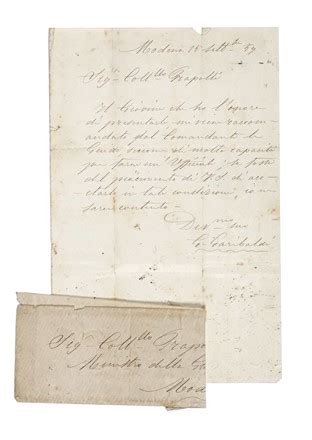 Modena 18 Sett.e 59
Sig.r Coll.llo Frapolli
Il Giovine che ho l'onore
di presentarle mi vien racco-
mandato dal Comandante le
Guide siccome di molto capente
per fare un Uffiziale; se fosse
del piacimento di V.S. di acc-
ettarlo in tale condizione, io ne
sarei contento
Dev.mo suo
G. Garibaldi
Sig.r Coll.llo Frapolli
Ministro della Gu
Mod